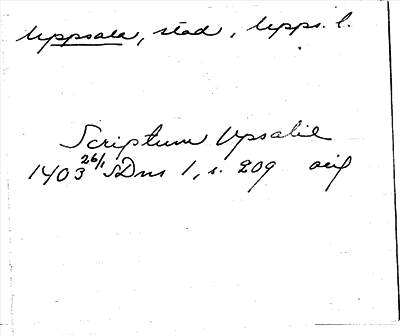 Uppsala, stad, Upps. l.
Scriptum Vpsalie
1403 26/1 SDns 1, s. 209 orig